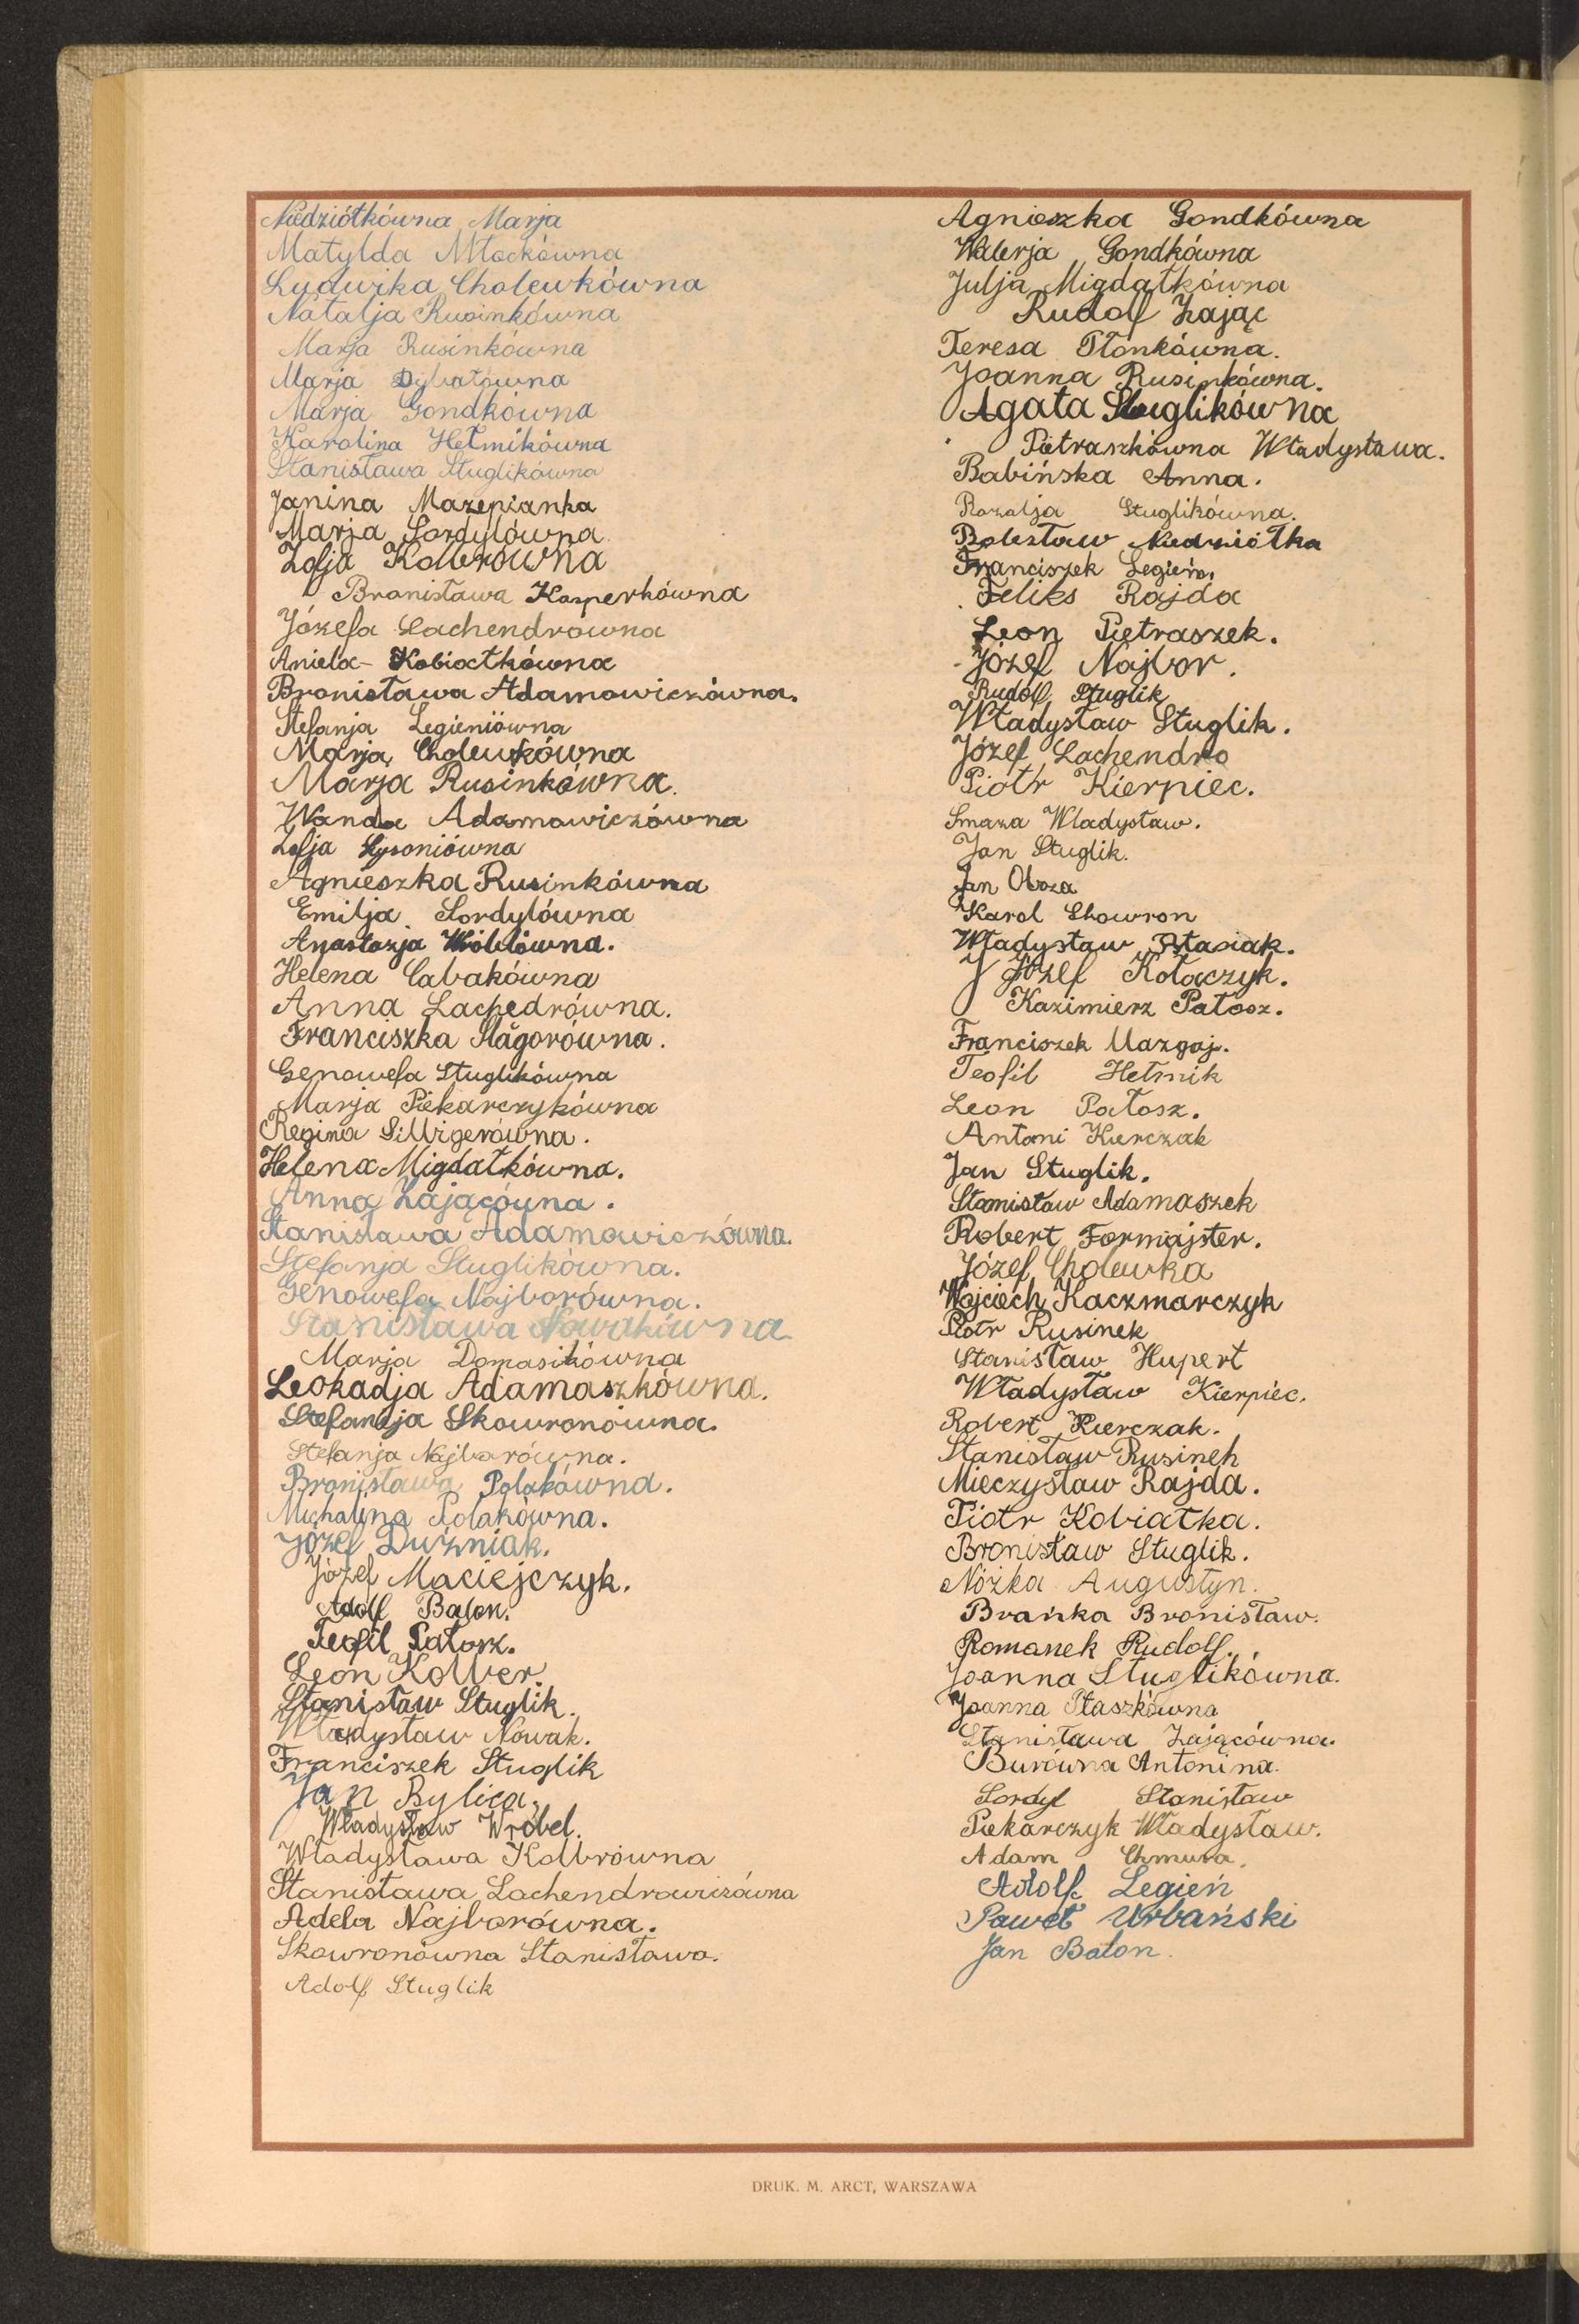 Niedziółkówna Marja
Matylda Młockówna
Ludwika Cholewkówna
Natalja Rusinkówna
Marja Rusinkówna
Marja Dybałówna
Marja Gondkówna
Karolina Hetmikówna
Stanisława Stuglikówna
Janina Mazepianka
Marja Sordylówna
Zofja Kolbrówna
Bronisława Kasperkówna
Józefa Lachendrówna
Aniela Kobiałkówna
Bronisława Adamowiczówna.
Stefanja Legieniówna
Marja Cholewkówna
Marja Rusinkówna.
Wanda Adamowiczówna
Zofja Łysoniówna
Agnieszka Rusinkówna
Emilja Sordylówna
Anastazja Wróblówna.
Helena Cabakówna
Anna Lachedrówna.
Franciszka Magorówna.
Genowefa Stuglikówna
Marja Piekarczykówna
Regina Sillvigerówna.
Helena Migdałkówna.
Anna Zającówna.
Stanisława Adamowiczówna.
Stefanja Stuglikówna.
Genowefa Najborówna.
Stanisława Nowakówna
Marja Domasikówna
Leokadja Adamaszkówna.
Stefanja Skowronówna.
Stefanja Najborówna.
Bronisława Polakówna.
Michalina Polakówna.
Józef Duźniak.
Józef Maciejczyk.
Adolf Balon.
Teofil Patosz.
Leon Kolber.
Stanisław Stuglik.
Władysław Nowak.
Franciszek Stuglik
Jan Bylica.
Władysław Wróbel.
Władysława Kolbrówna
Stanisława Lachendrowiczówna
Adela Najborówna.
Skowronówna Stanisława.
Adolf Stuglik
Agnieszka Gondkówna
Walerja Gondkówna
Julja Migdałkówna
Rudolf Zając
Teresa Płonkówna.
Joanna Rusinkówna.
Agata Stuglikówna
Pietraszkówna Władysława.
Babińska Anna.
Rozalja Stuglikówna.
Bolesław Niedziółka
Franciszek Legień.
Feliks Rajda
Leon Pietraszek.
Józef Najbor.
Rudolf Stuglik
Władysław Stuglik.
Józef Lachendro
Piotr Kierpiec.
Smaza Władysław.
Jan Stuglik.
Jan Oboza
Karol Skowron
Władysław Ptasiak.
Józef Kołaczyk.
Kazimierz Patosz.
Franciszek Mazgaj.
Teofil Hetmik
Leon Patosz.
Antoni Kierczak
Jan Stuglik.
Stanisław Adamaszek
Robert Formajster.
Józef Cholewka
Wojciech Kaczmarczyk
Piotr Rusinek
Stanisław Hupert
Władysław Kierpiec.
Robert Kierczak.
Stanisław Rusinek
Mieczysław Rajda.
Piotr Kobiałka.
Bronisław Stuglik.
Nóżka Augustyn.
Brańka Bronisław.
Romanek Rudolf.
Joanna Stuglikówna.
Joanna Ptaszkówna
Stanisława Zającówna.
Burówna Antonina.
Sordyl Stanisław
Piekarczyk Władysław.
Adam Chmura.
Adolf Legień
Paweł Urbański
Jan Balon.
DRUK. M. ARCT, WARSZAWA